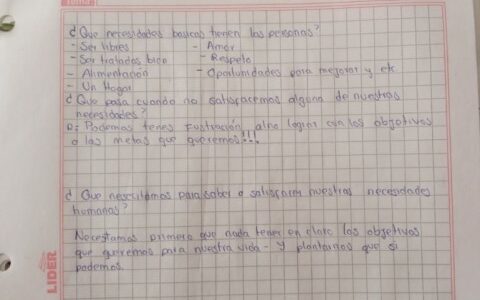 ¿Que necesidades basicas tienen las personas?
- Ser libres - Amor
- Ser tratados bien - Respeto
- Alimentación - Oportunidades para mejorar y etc
- Un Hogar
¿Que pasa cuando no satisfacemos alguna de nuestras
necesidades?
R: Podemos tener Fustración, al no lograr con los objetivos
o las metas que queremos!!!
¿ Que necesitamos para saber o satisfacer nuestras necesidades
humanas?
Necesitamos primero que nada tener en claro los objetivos
que queremos para nuestra vida - y plantarnos que si
podemos.
LIDER